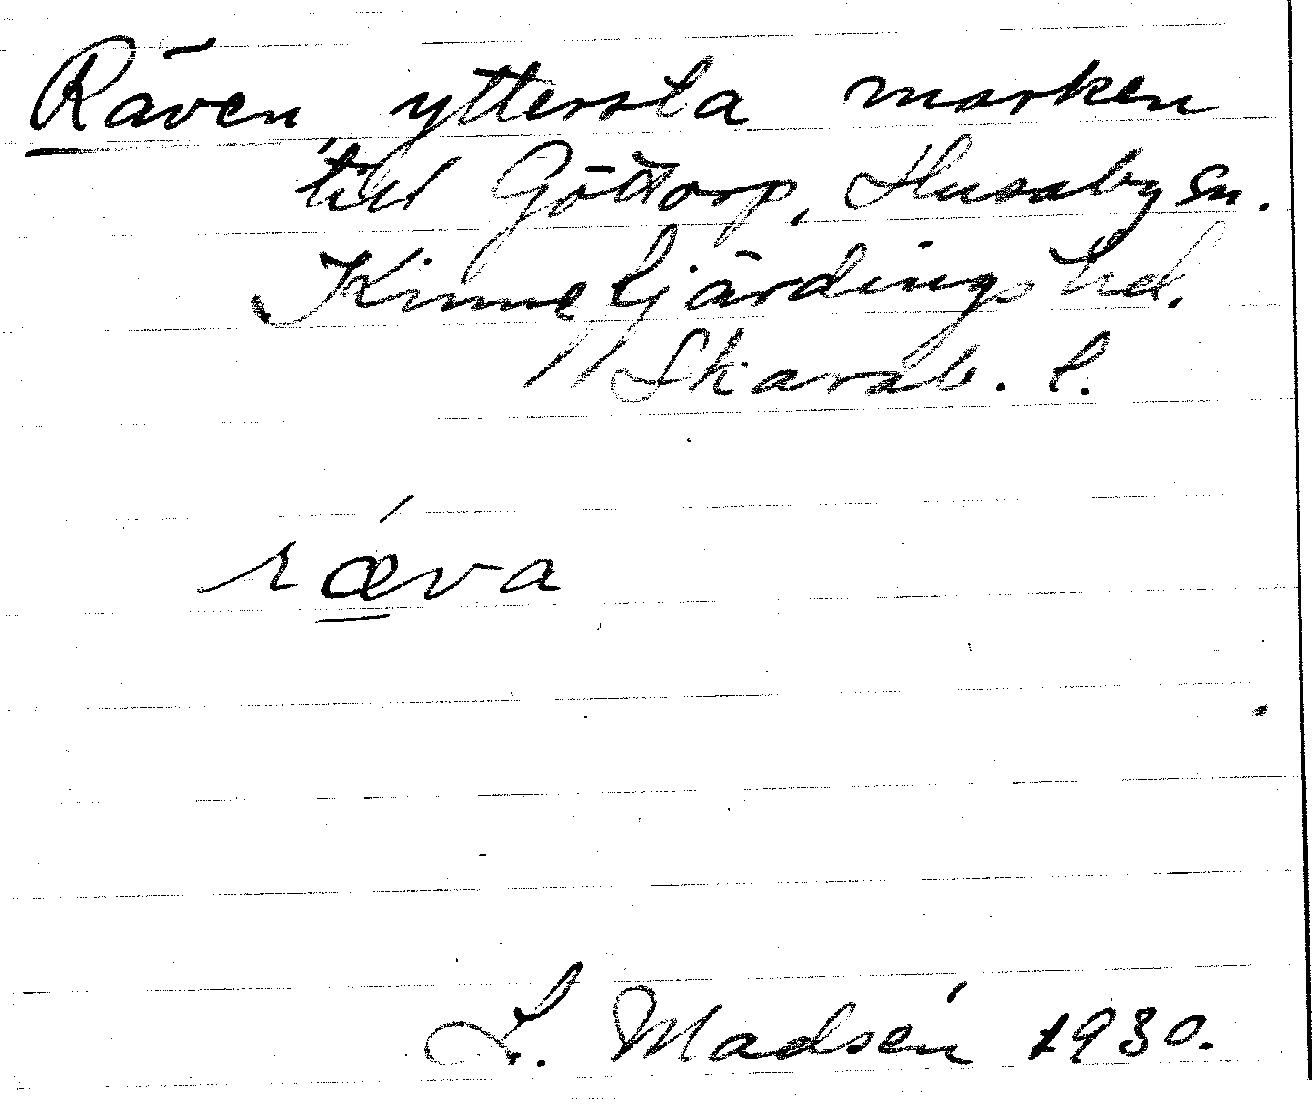 Räven, yttersta marken
till Göttorp, Husaby sn.
Kinnefjärdings hd.
Skarab. l.
ræva
L. Madsén 1930.